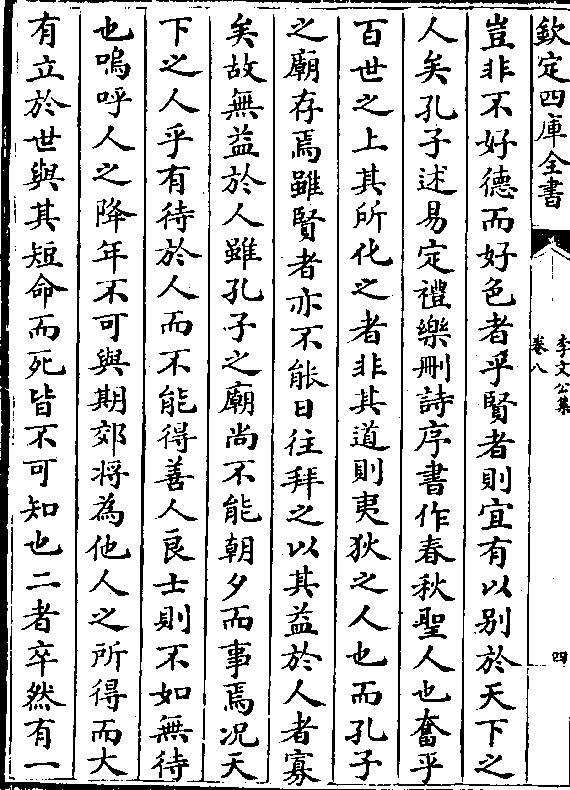 欽定四庫全書
李文公集
卷八
四
豈非不好德而好色者乎賢者則宜有以别於天下之
人矣孔子述易定禮樂刪詩序書作春秋聖人也奮乎
百世之上其所化之者非其道則夷狄之人也而孔子
之廟存焉雖賢者亦不能日往拜之以其益於人者寡
矣故無益於人雖孔子之廟尚不能朝夕而事焉況天
下之人乎有待於人而不能得善人良士則不如無待
也嗚呼人之降年不可與期郊將為他人之所得而大
有立於世與其短命而死皆不可知也二者卒然有一